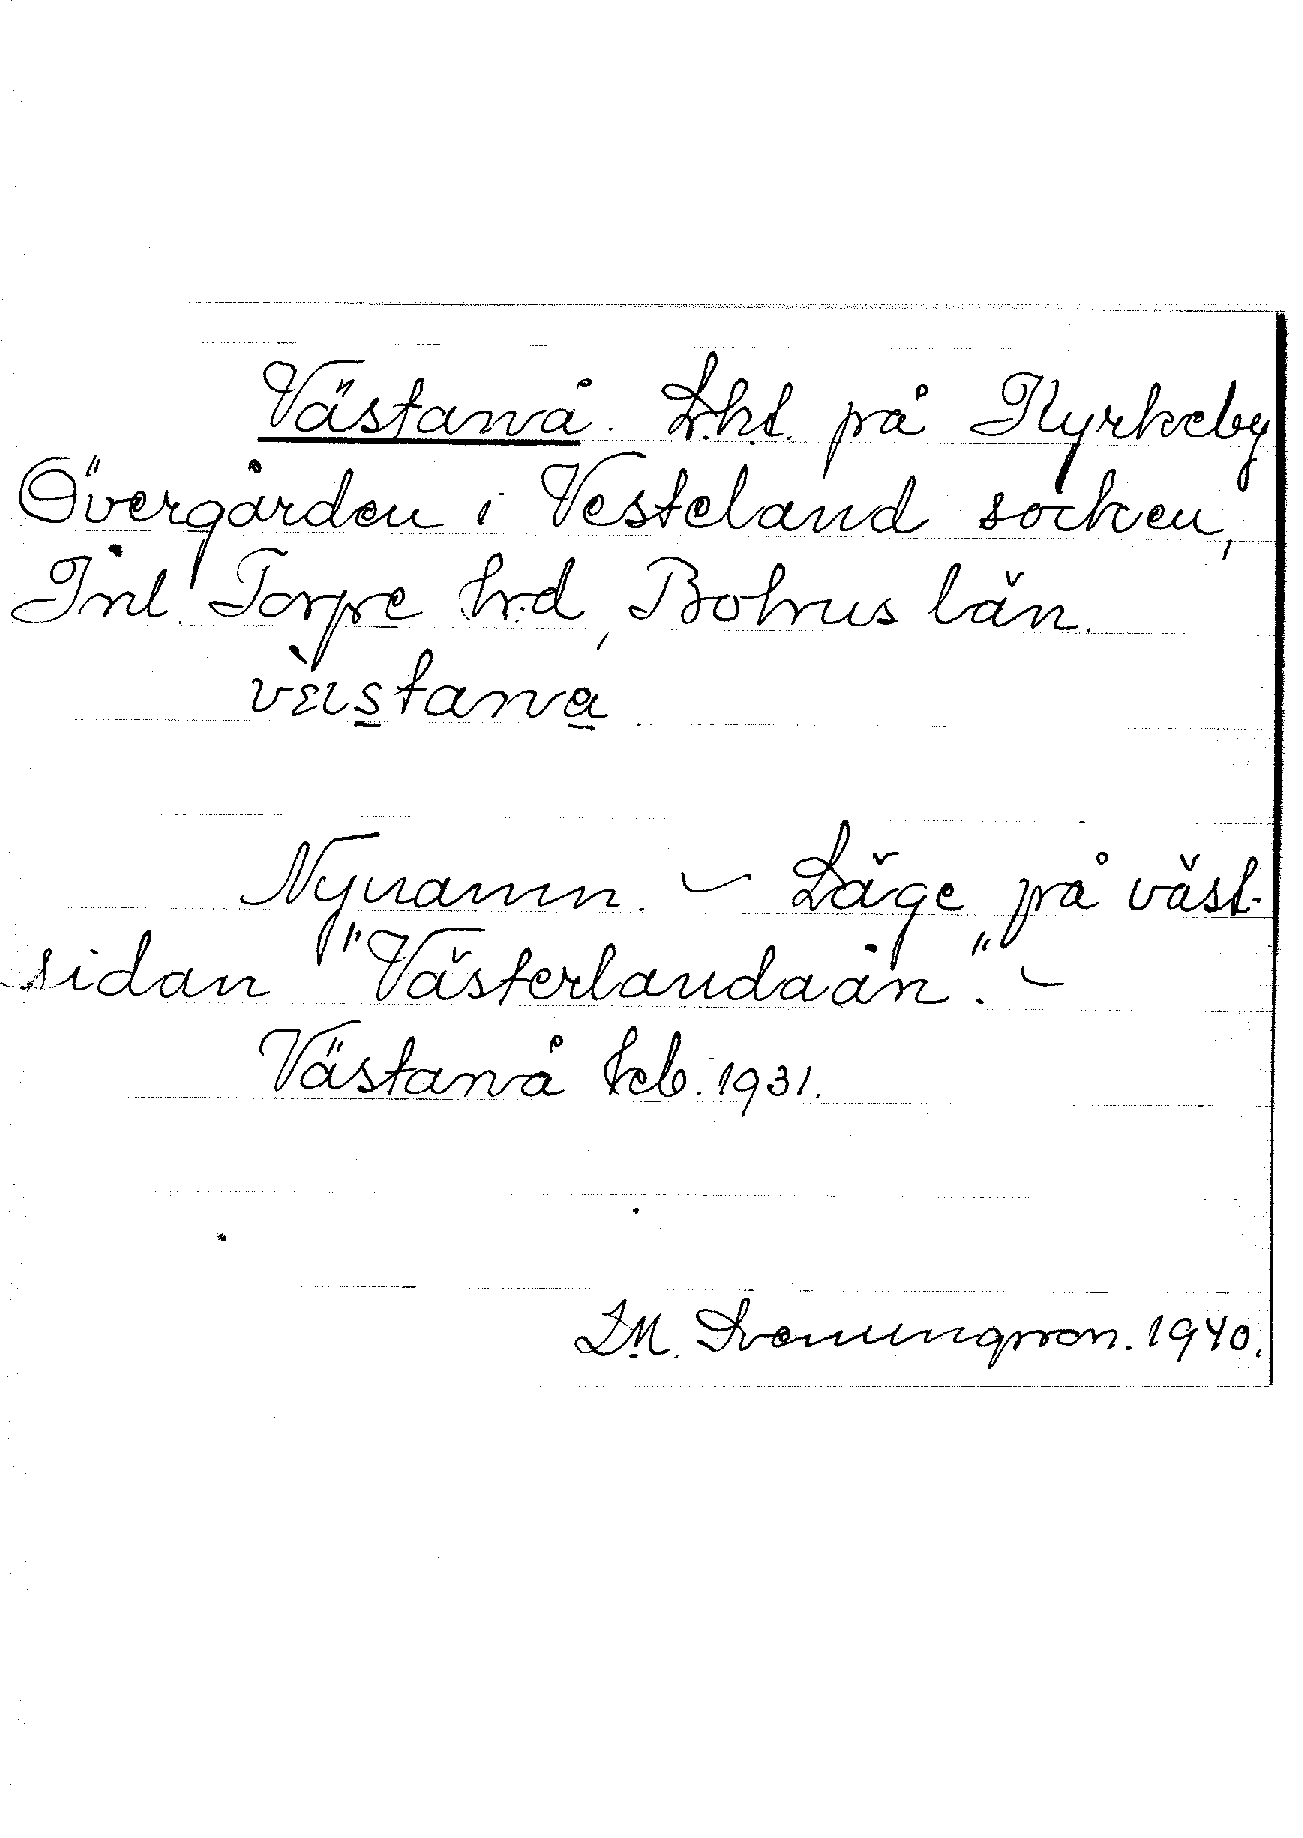 Västanå. L.h.t. på Kyrkeby
Övergården i Vesteland socken,
Inl. Torpe hrd, Bohus län.
Nynamn. – Läge på väst-
sidan "Västerlandaån". –
Västanå teb. 1931.
L.M. Svenungsson. 1940.